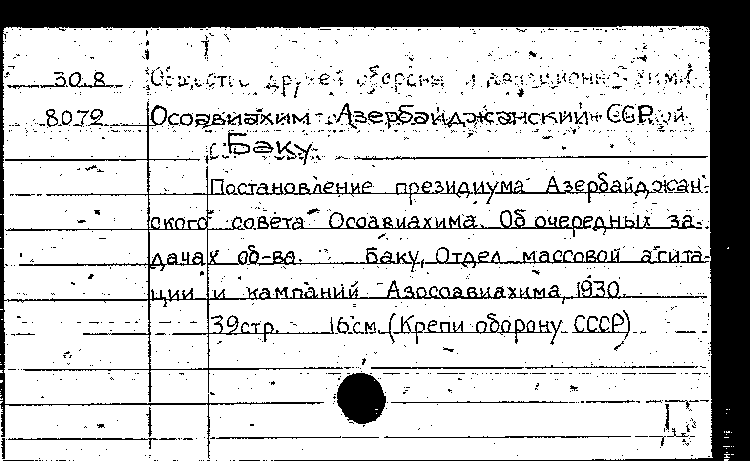 30.8 Общество друзей обороны и авиационно-хими
8072 Осоавиахим Азербайджанский ССР.
Баку.
Постановление президиума Азербайджан-
ского совета Осоавиахима. Об очередных за-
дачах об-ва. Баку, Отдел массовой агита-
ции и кампаний Азосоавиахима, 1930.
39стр. 16см. (Крепи оборону СССР)